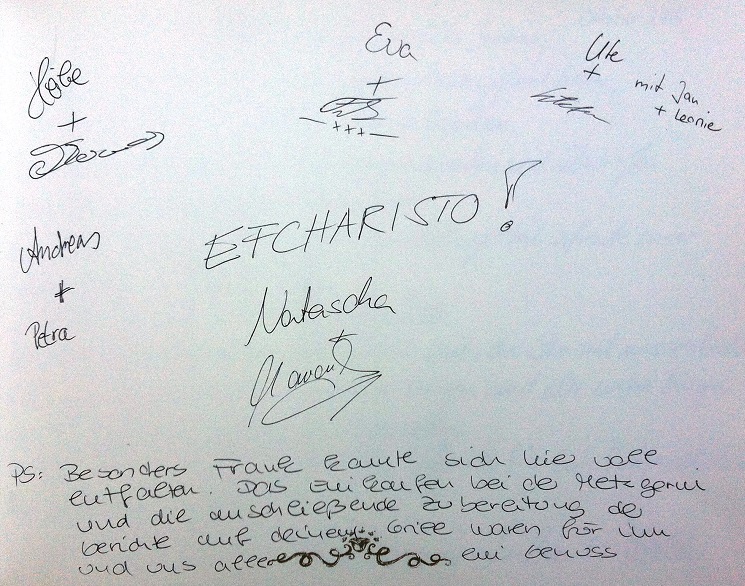 Eva
+
Ute
+
mit Jan
+ Leonie
+
Andreas
+
Petra
EFCHARISTO!
Natascha
PS: Besonders Frank konnte sich hier voll
entfalten. Das Einkaufen bei der Metzgerei
und die anschließende Zubereitung der
berichte auf deinem Grill waren für ihn
und uns alle ein Genuss